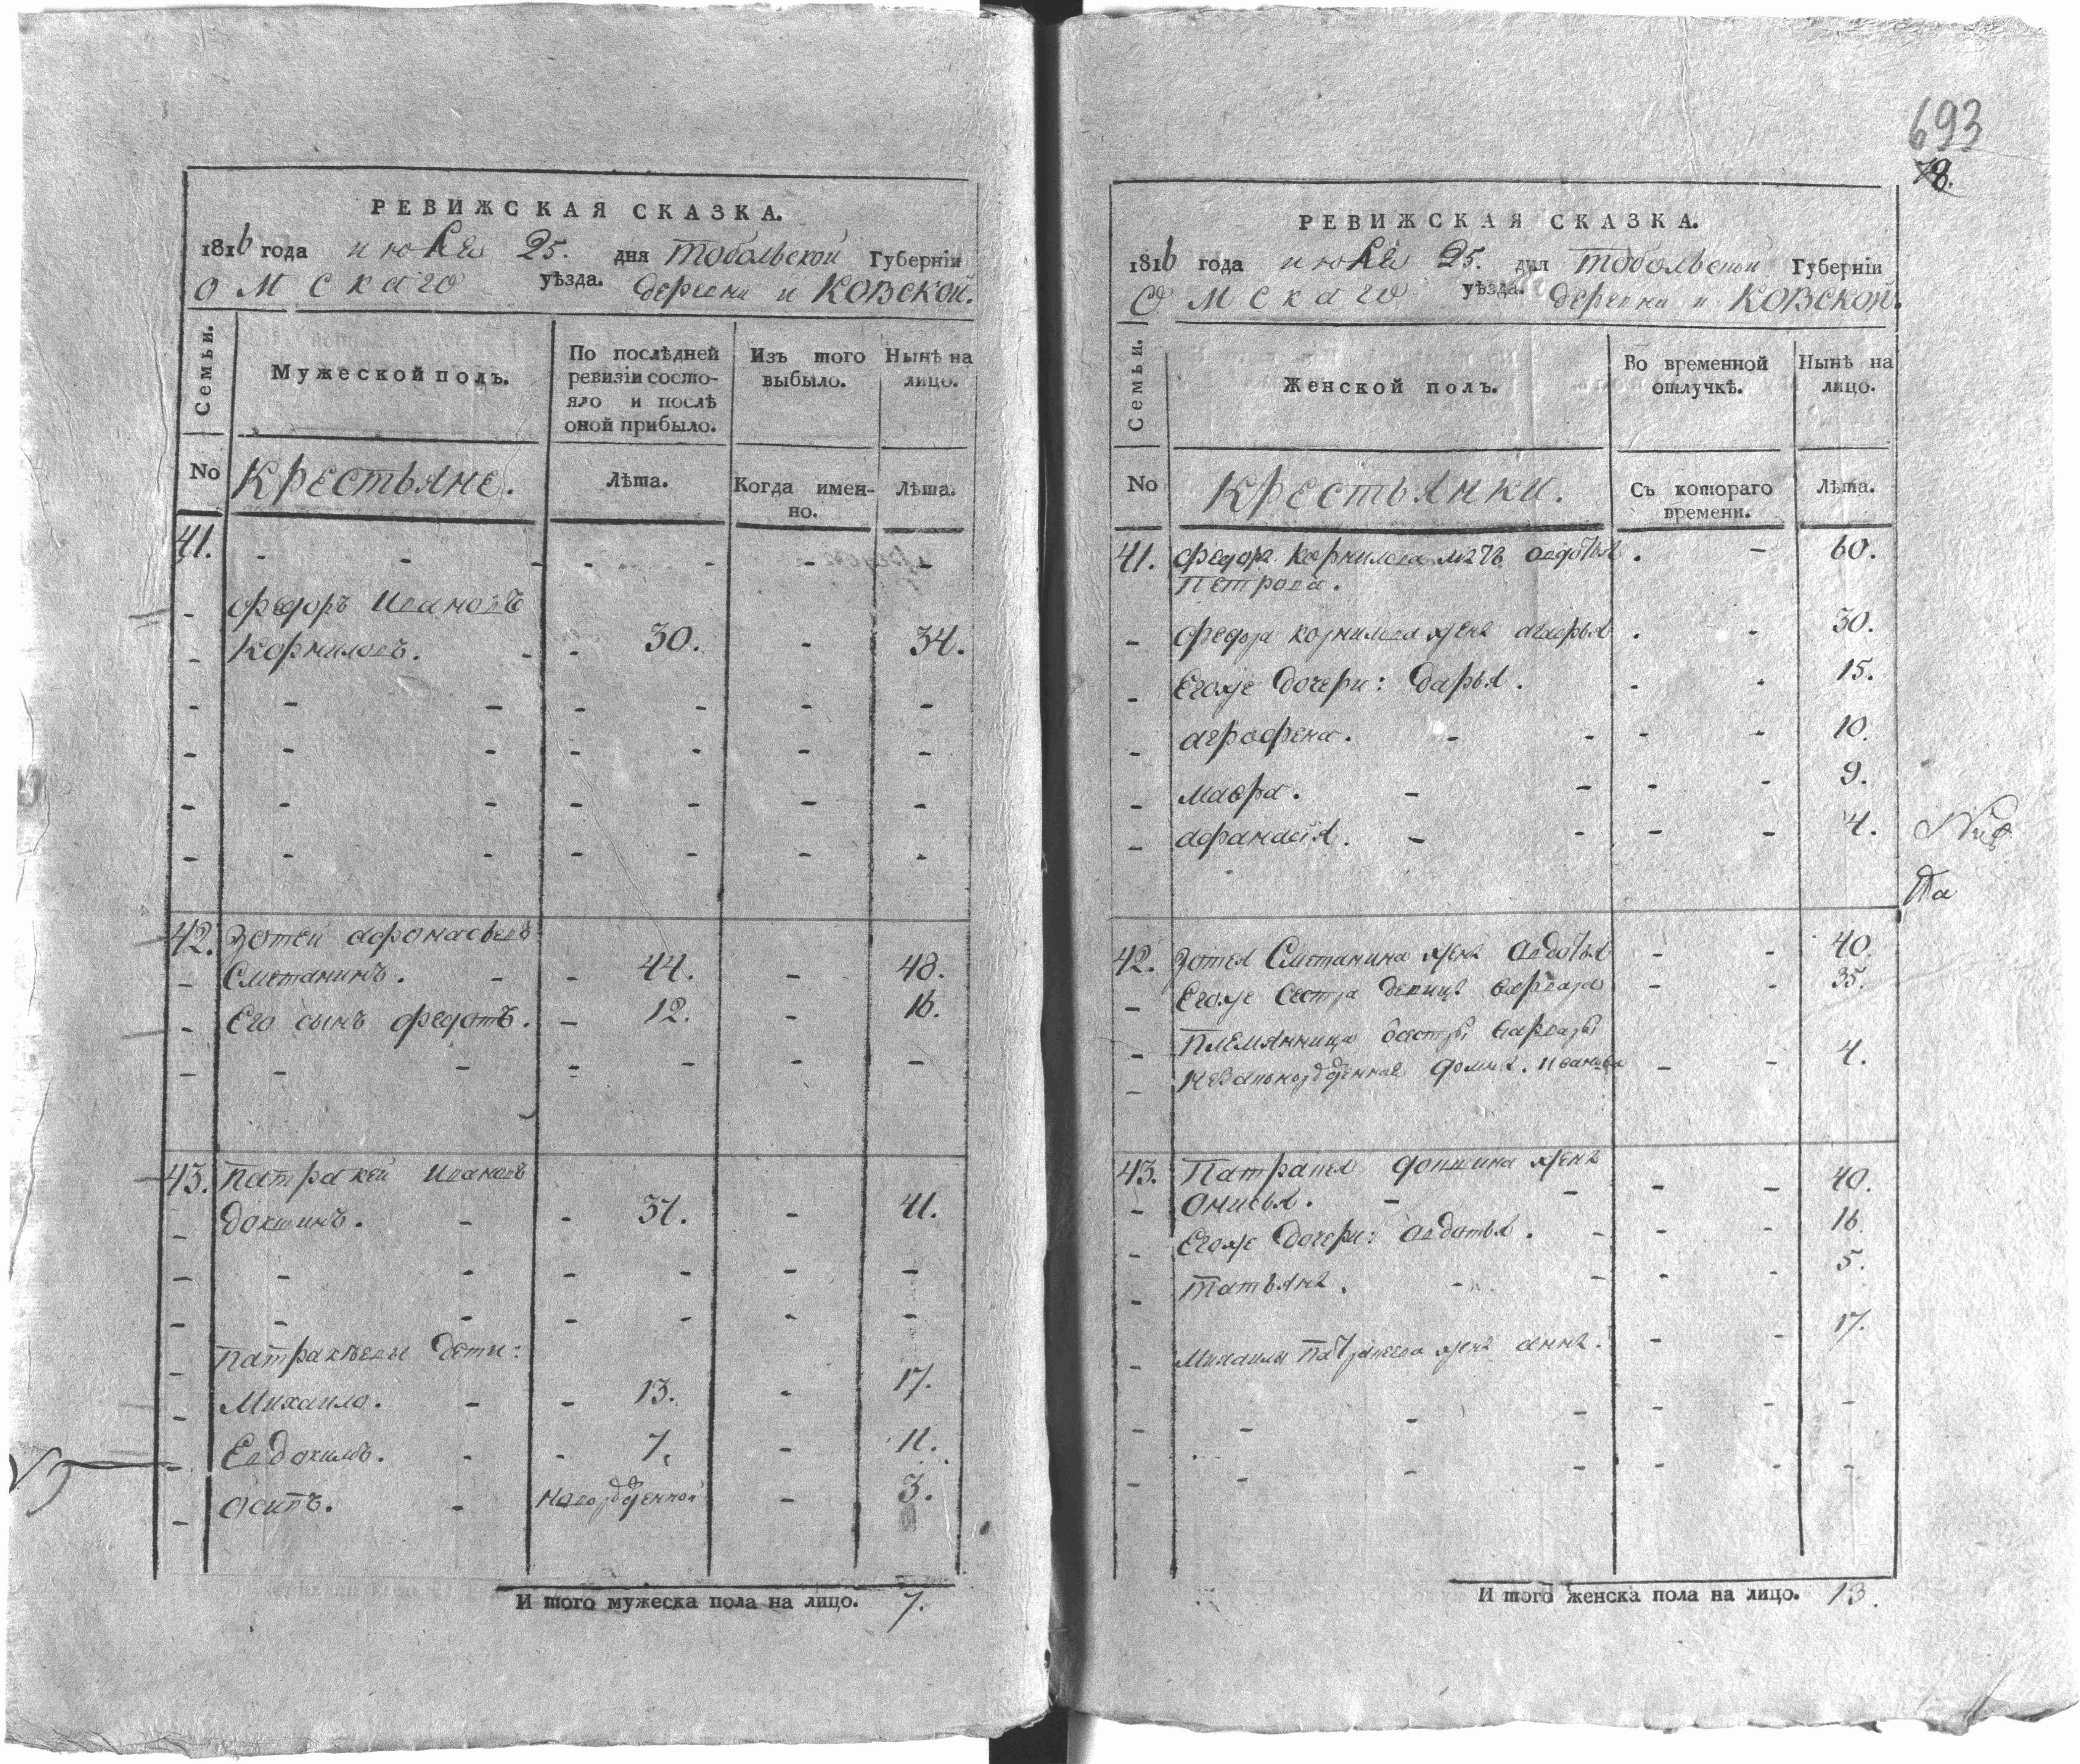 РЕВИЖСКАЯ СКАЗКА.
1816 года июля 25. дня Тобольской Губерніи
Омскаго уѣзда. деревни иковской.
Семьи.
Мужеской полъ.
По послѣдней ревизіи состояло и послѣ оной прибыло.
Изъ того выбыло.
Нынѣ на лицо.
No Крестьяне. Лѣта. Когда именно. Лѣта.
41. - - - - - - -
- федоръ Ивановъ
- Корниловъ. - - 30. - 34.
- - - - - - -
- - - - - - -
- - - - - - -
- - - - - - -
42. Зотей афонасьевъ
- Сметанинъ. - - 44. - 48.
- Его сынъ федотъ. - 12. - 16.
- - - - - - -
43. Патракей Ивановъ
- докшинъ. - - 37. - 41.
- - - - - - -
- - - - - - -
- Патракѣевы дети:
- Михаило. - - 13. - 17.
- Евдокимъ. - - 7. - 11.
- осипъ. - новорожденной - 3.
И того мужеска пола на лицо. 7.
693
78.
РЕВИЖСКАЯ СКАЗКА.
1816 года июля 25. дня Тобольской Губерніи
Омскаго уѣзда. деревни иковской.
Семьи.
Женской полъ.
Во временной отлучкѣ.
Нынѣ на лицо.
No Крестьянки. Съ котораго времени. Лѣта.
41. федора Корнилова мать авдотья . - 60.
Петрова.
- федора корнилова жена . - 30.
- Егоже дочери: дарья. - . 15.
- аграфена. - - - - 10.
- мавра. - - - - 9.
- афанасія. - - - - 4.
42. Зотея Сметанина жена авдотья - - 40.
- Егоже сестра девица варвара - - 35.
- Племянница сестры варвары
- незаконорожденная домна. Иванова - - 4.
43. Патракея докшина жена
- онисья. - - - - 40.
- Егоже дочери: авдотья. - - - 16.
- татьяна. - - - - 5.
- Михаилы Патракеева жена анна. - - 17.
- - - - - - -
- - - - - - -
И того женска пола на лицо. 13.